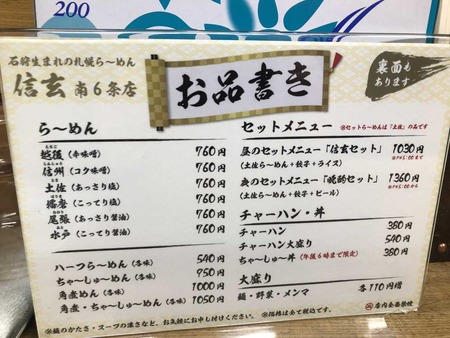 石狩生まれの札幌ら〜めん
信玄 南6条店
お品書き
裏面も
あります
ら〜めん
越後（辛味噌） 760円
信州（コク味噌） 760円
土佐（あっさり塩） 760円
播磨（こってり塩） 760円
尾張（あっさり醤油） 760円
水戸（こってり醤油） 760円
ハーフら〜めん（各味） 540円
ちゃ〜しゅ〜めん（各味） 750円
角煮めん（各味） 1000円
角煮・ちゃ〜しゅ〜めん（各味） 1050円
※麺のかたさ・スープの濃さなど、お気軽にお申し付けください。
セットメニュー ※セットら〜めんは「土佐」の品です
昼のセットメニュー「信玄セット」 1030円
（土佐ら〜めん+餃子+ライス） ※PM5:00まで
夜のセットメニュー「晩酌セット」 1360円
（土佐ら〜めん+餃子+ビール） ※PM5:00から
チャーハン・丼
チャーハン 380円
チャーハン大盛り 540円
ちゃ〜しゅ〜丼（午後6時まで限定） 380円
大盛り
麺・野菜・メンマ 各110円増
※価格は全て税込です。
店内全面禁煙